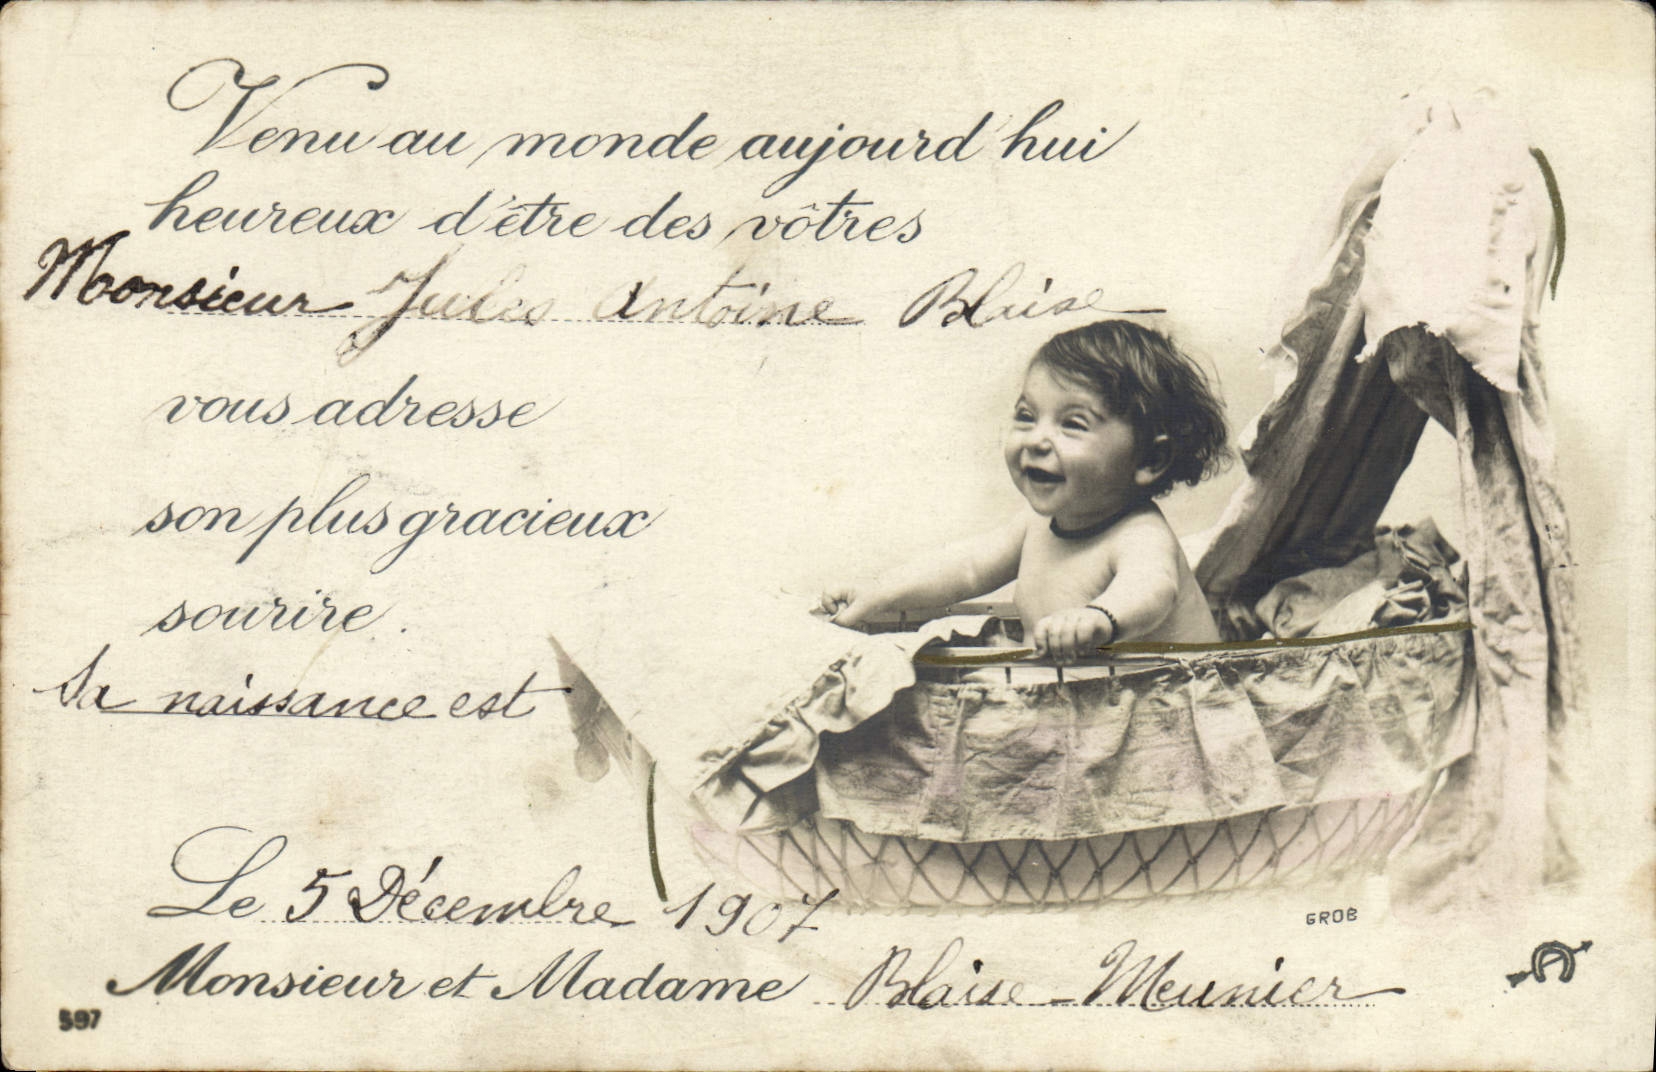 Venu au monde aujourd'hui
heureux d'être des vôtres
Monsieur Jules Antoine Blaise
vous adresse
son plus gracieux
sourire.
Sa naissance est
Le 5 Décembre 1907
GROB
Monsieur et Madame Blaise-Meunier
597